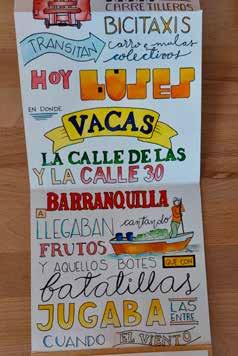 CARRETILLEROS
BICITAXIS
TRANSITAN carro e mulas
colectivos
HOY BUSES
EN DONDE
VACAS
LA CALLE DE LAS
Y LA CALLE 30
BARRANQUILLA
A
LLEGABAN cantando
FRUTOS
Y AQUELLOS BOTES QUE CON
batatillas
JUGABA LAS
ENTRE
CUANDO EL VIENTO